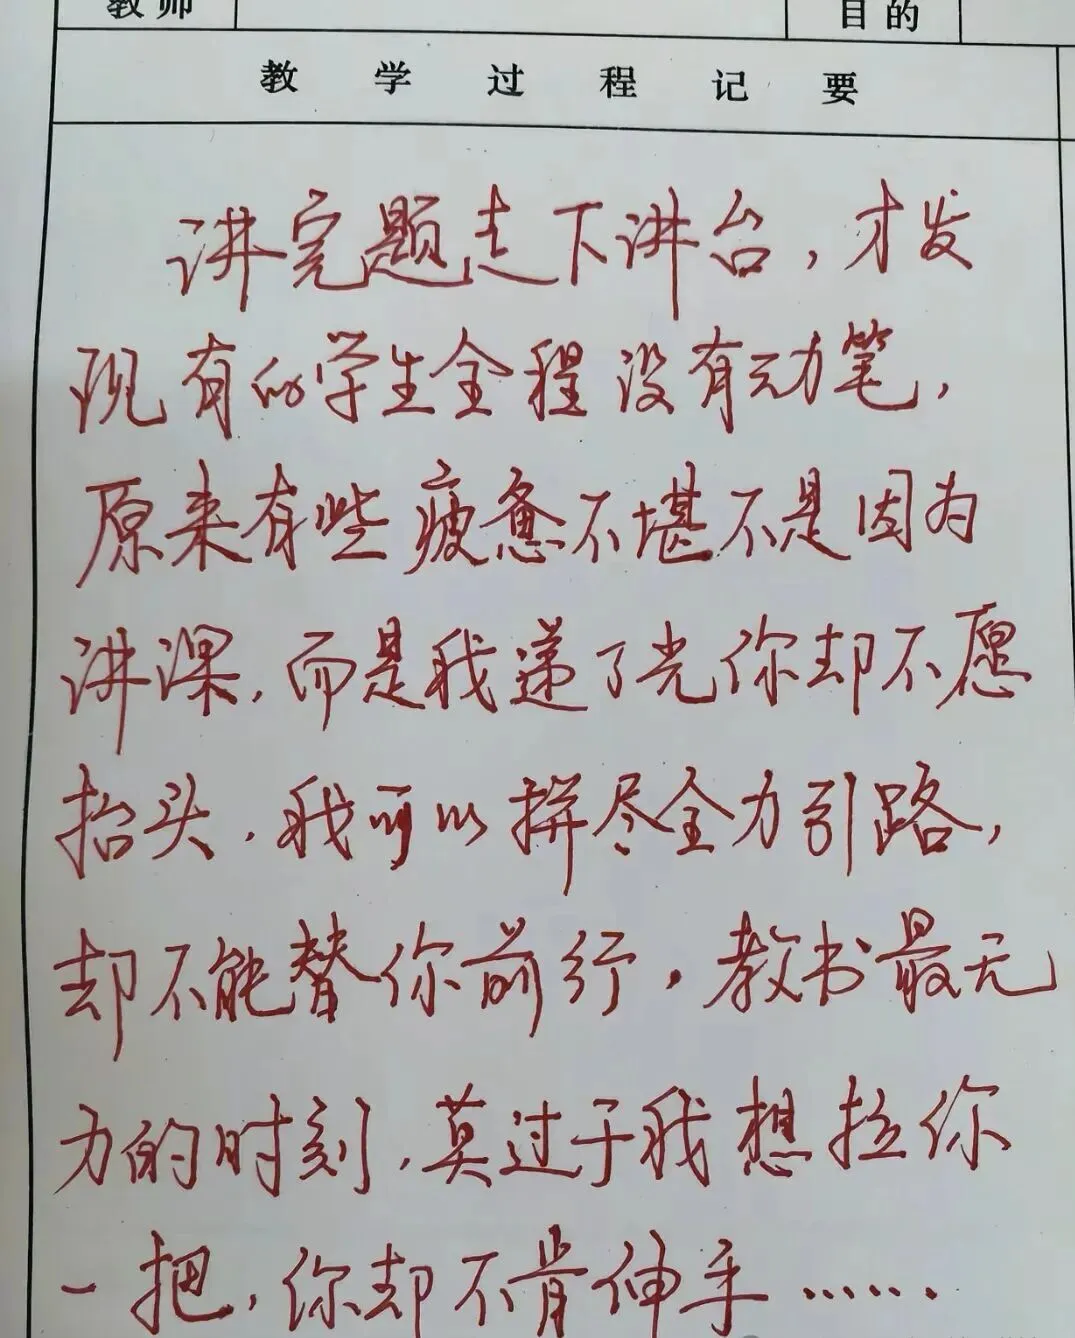 教师
目的
教学过程记要
讲完题走下讲台，才发
现有的学生全程没有动笔，
原来有些疲惫不堪不是因为
讲课，而是我递了光你却不愿
抬头，我可以拼尽全力引路，
却不能替你前行。教书最无
力的时刻，莫过于我想拉你
一把，你却不肯伸手……